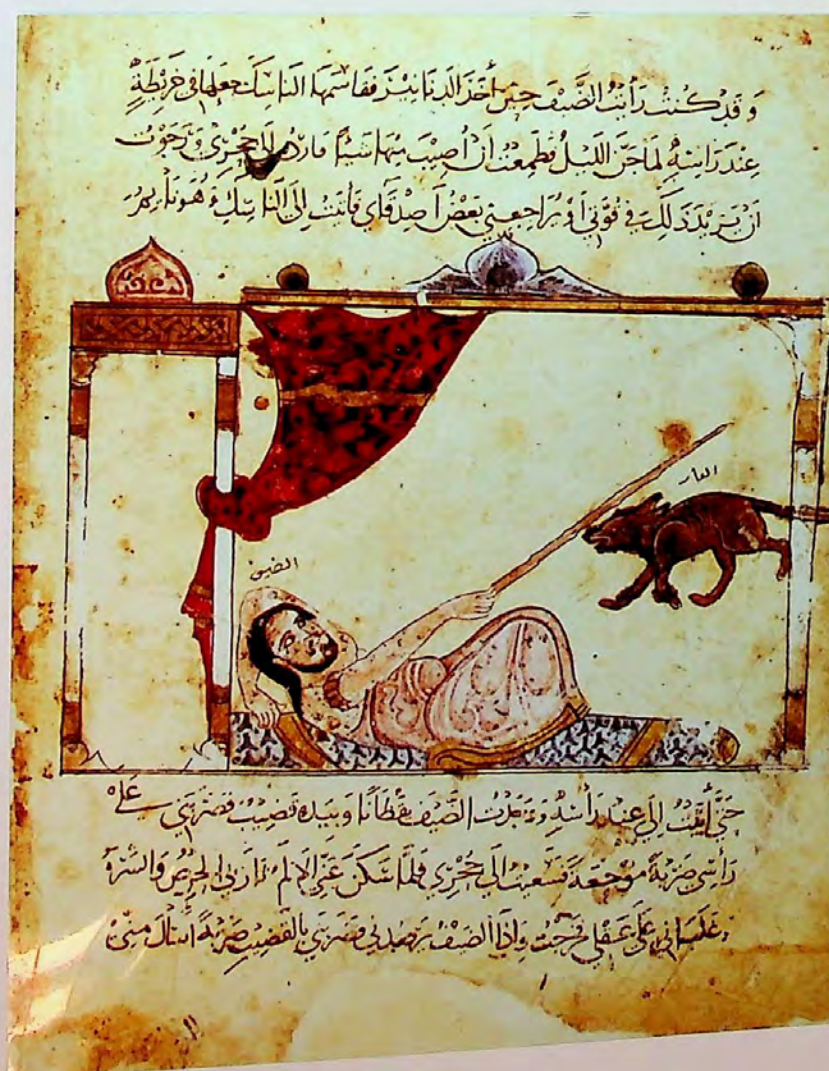 وَقَدْ كُنْتُ رَأَيْتُ الضَّيْفَ حِيْنَ أَخَذَ الدَنَانِيْرَ فَقَاسَمَهَا النَاسِكَ فجَعَلَهَا فِي خَرِيْطَةٍ
عِنْدَ رَاسِهِ لَمَا جَنَّ اللَيْلُ فَطَمِعْتُ اَنْ اُصِيْبَ مِنْهَا شَيْئًا فاردّه الى جُحْرِي وَرَجَوْتُ
اَنْ يَزِيْدَ ذَلِكَ فِي قُوَّتِي اَوْ يُرَاجِعنِي بَعْضُ اَصْدِقَاي فَاتَيْتُ اِلَى النَاسِكِ وَهُوَ نَايِم
الفار
الضيف
حَتَّى انتهيتُ اِلَى عِنْدِ رَأسِهِ وَوَجَدْتُ الضَّيْفَ يَقْظَانًا وَبِيَدِهِ قَضِيْبٌ فَضَرَبَنِي عَلَى
رَأسِي ضَرْبَةً مُوْجِعَةً فَسَعَيْتُ اِلَى جُحْرِي فَلَمَّا سَكَنَ عَنِّي الاَلَمُ ثارَ بِي الحِرْصُ وَالشَّرَهُ
وغَلَبَانِي عَلَى عَقْلِي فَخَرَجْتُ وَاِذَا الضَيْفُ يَرْصُدُنِي فَضَرَبَنِي بِالقَضِيْبِ ضَرْبَةً اَسَالَ مِنِّي